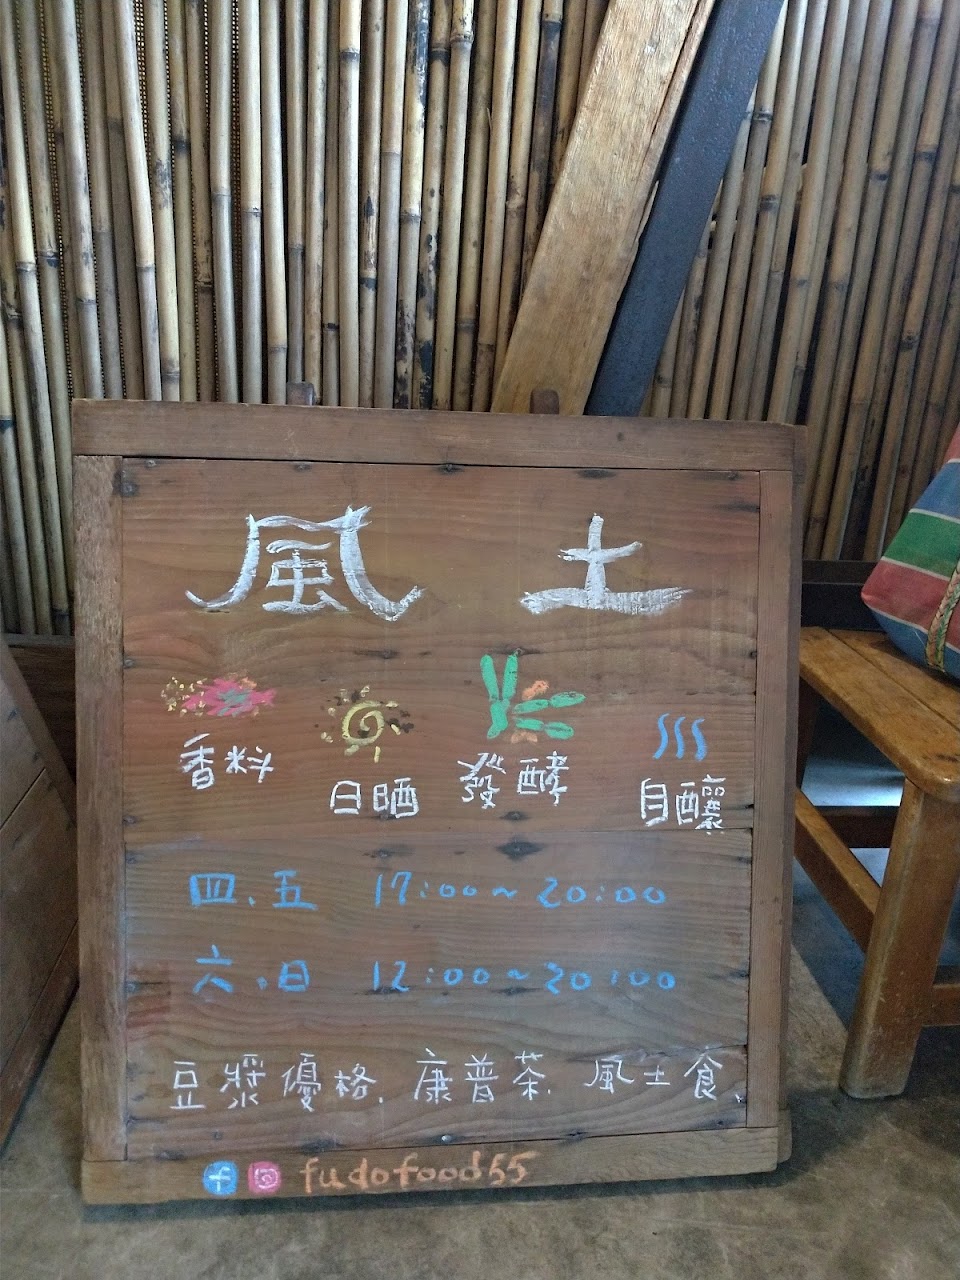 風 土
香料 日晒 發酵 自釀
四、五 17:00~20:00
六、日 12:00~20:00
豆漿優格、康普茶、風土食、
fudofood55